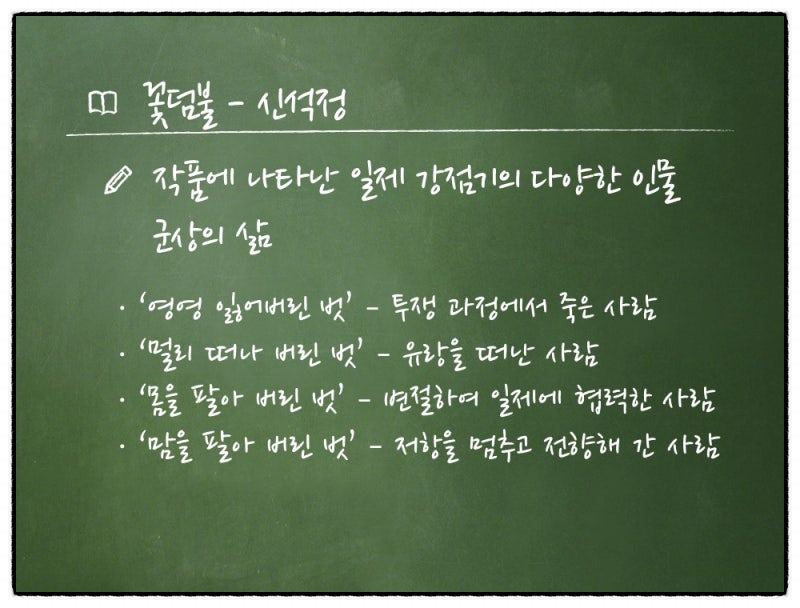 꽃덤불 - 신석정
작품에 나타난 일제 강점기의 다양한 인물
군상의 삶
· ‘영영 잃어버린 벗’ - 투쟁 과정에서 죽은 사람
· ‘멀리 떠나 버린 벗’ - 유랑을 떠난 사람
· ‘몸을 팔아 버린 벗’ - 변절하여 일제에 협력한 사람
· ‘맘을 팔아 버린 벗’ - 저항을 멈추고 전향해 간 사람